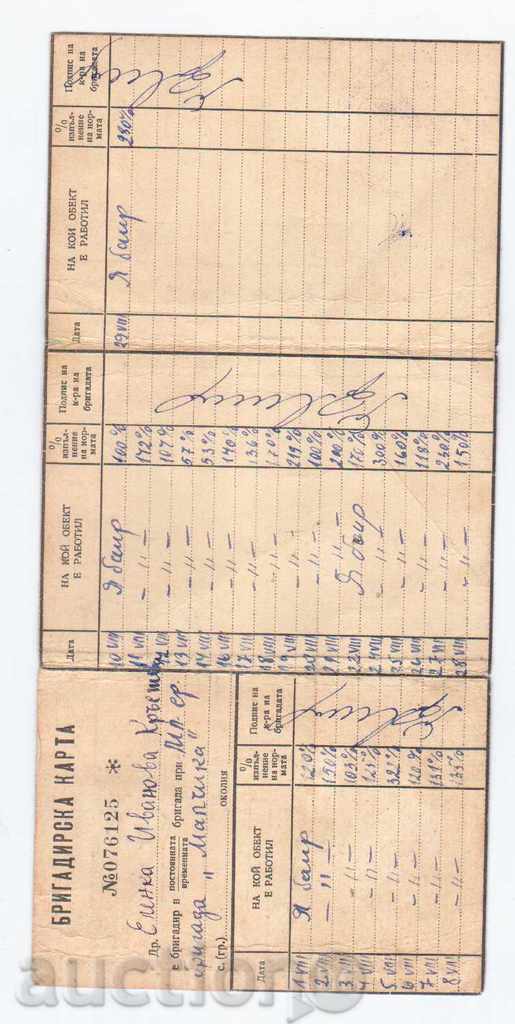 БРИГАДИРСКА КАРТА
№076125 *
Др. Еленка Иванова
е бригадир в постоянната
временната бригада при
бригада „
с. (гр.) околия
Дата НА КОЙ ОБЕКТ Е РАБОТИЛ % изпълнение на нормата Подпис на к-ра на бригадата
1 VIII Я баир 120%
2 VIII – " – 150%
3 VIII – " – 103%
4 VIII – " – 125%
5 VIII – " – 32%
6 VIII – " – 120%
7 VIII – " – 131%
8 VIII – " – 135%
Дата НА КОЙ ОБЕКТ Е РАБОТИЛ % изпълнение на нормата Подпис на к-ра на бригадата
10 VIII Я баир 100%
11 VIII – " – 172%
12 VIII – " – 107%
13 VIII – " – 57%
14 VIII – " – 53%
16 VIII – " – 140%
17 VIII – " – 136%
18 VIII – " – 170%
19 VIII – " – 219%
20 VIII – " – 100%
21 VIII – " – 210%
22 VIII Я баир 170%
24 VIII – " – 300%
25 VIII – " – 160%
26 VIII – " – 118%
27 VIII – " – 230%
28 VIII – " – 150%
Дата НА КОЙ ОБЕКТ Е РАБОТИЛ % изпълнение на нормата Подпис на к-ра на бригадата
29 VIII Я баир 230%
aukcion.bg